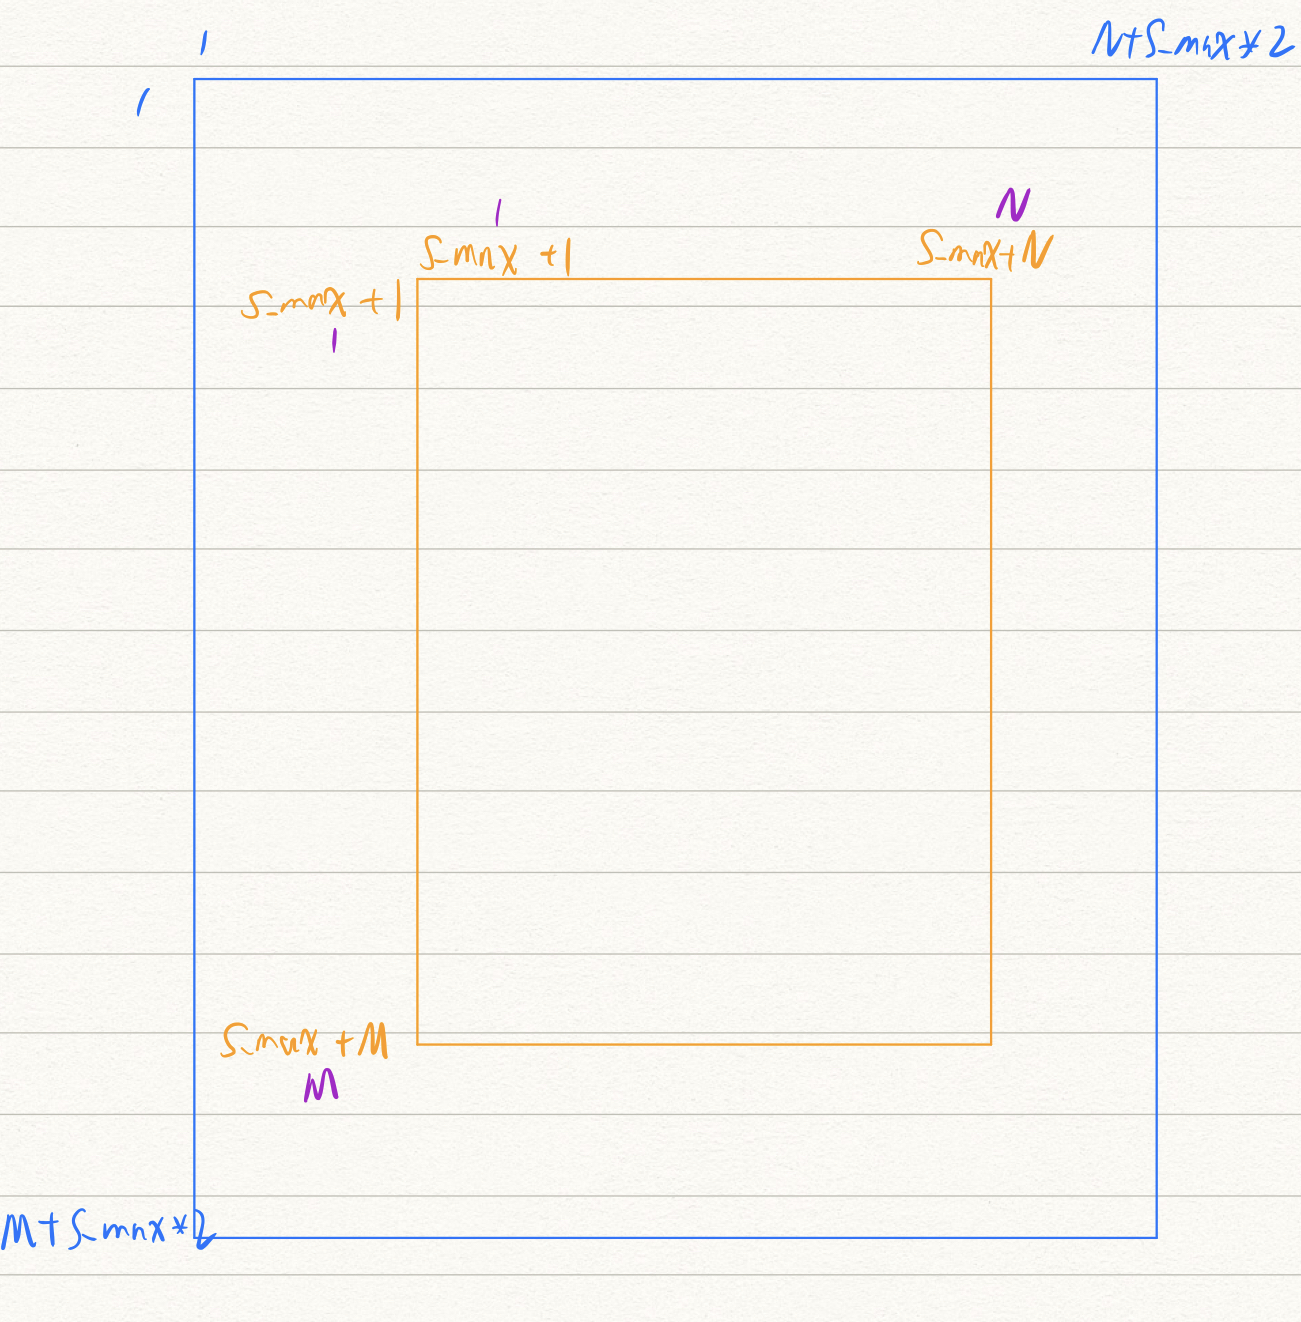 1
N+S_max*2
1
1
N
S_max+1
S_max+N
S_max+1
1
S_max+M
M
M+S_max*2